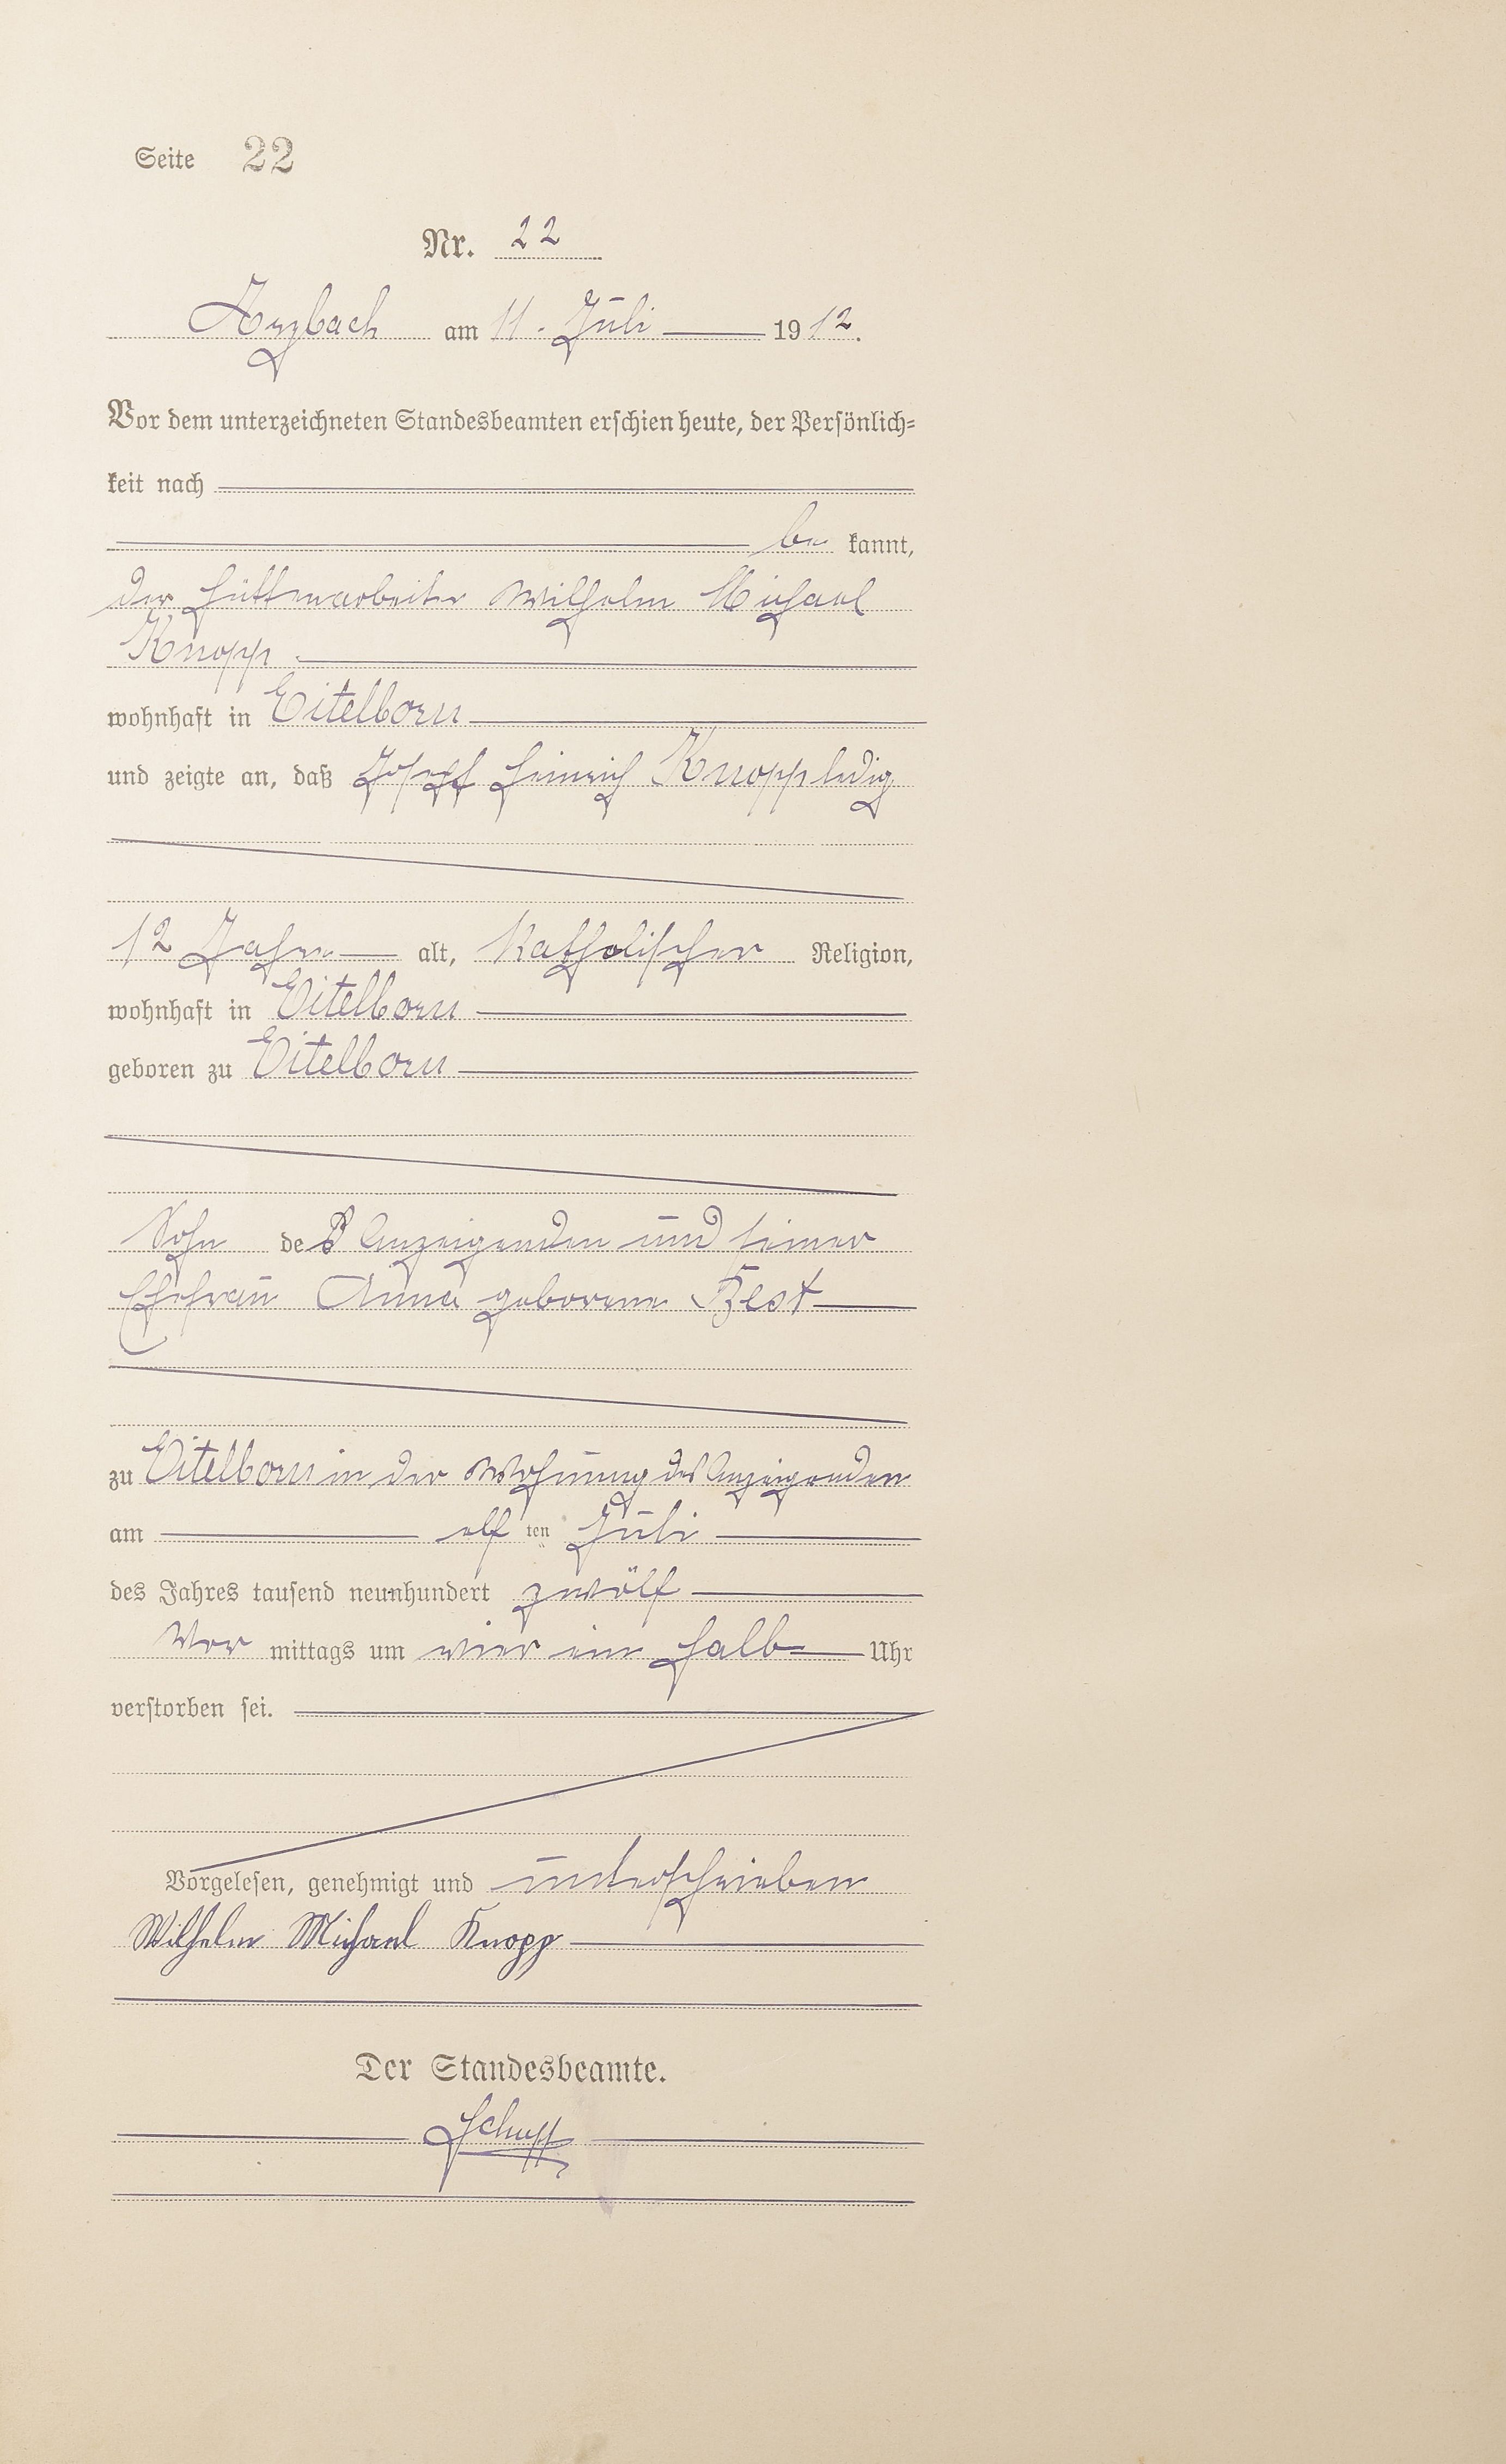 Seite 22
Nr. 22
Arzbach am 11. Juli 1912.
Vor dem unterzeichneten Standesbeamten erschien heute, der Persönlich=
keit nach
be kannt,
der Hüttenarbeiter Wilhelm Michael
Knopp
wohnhaft in Eitelborn
und zeigte an, daß Josef Heinrich Knopp ledig
12 Jahre alt, Katholischer Religion,
wohnhaft in Eitelborn
geboren zu Eitelborn
Sohn des Anzeigenden und seiner
Ehefrau Anna geborene Best
zu Eitelborn in der Wohnung des Anzeigenden
am elf ten Juli
des Jahres tausend neunhundert zwölf
Vor mittags um vier ein halb Uhr
verstorben sei.
Vorgelesen, genehmigt und unterschrieben
Wilhelm Michael Knopp
Der Standesbeamte.